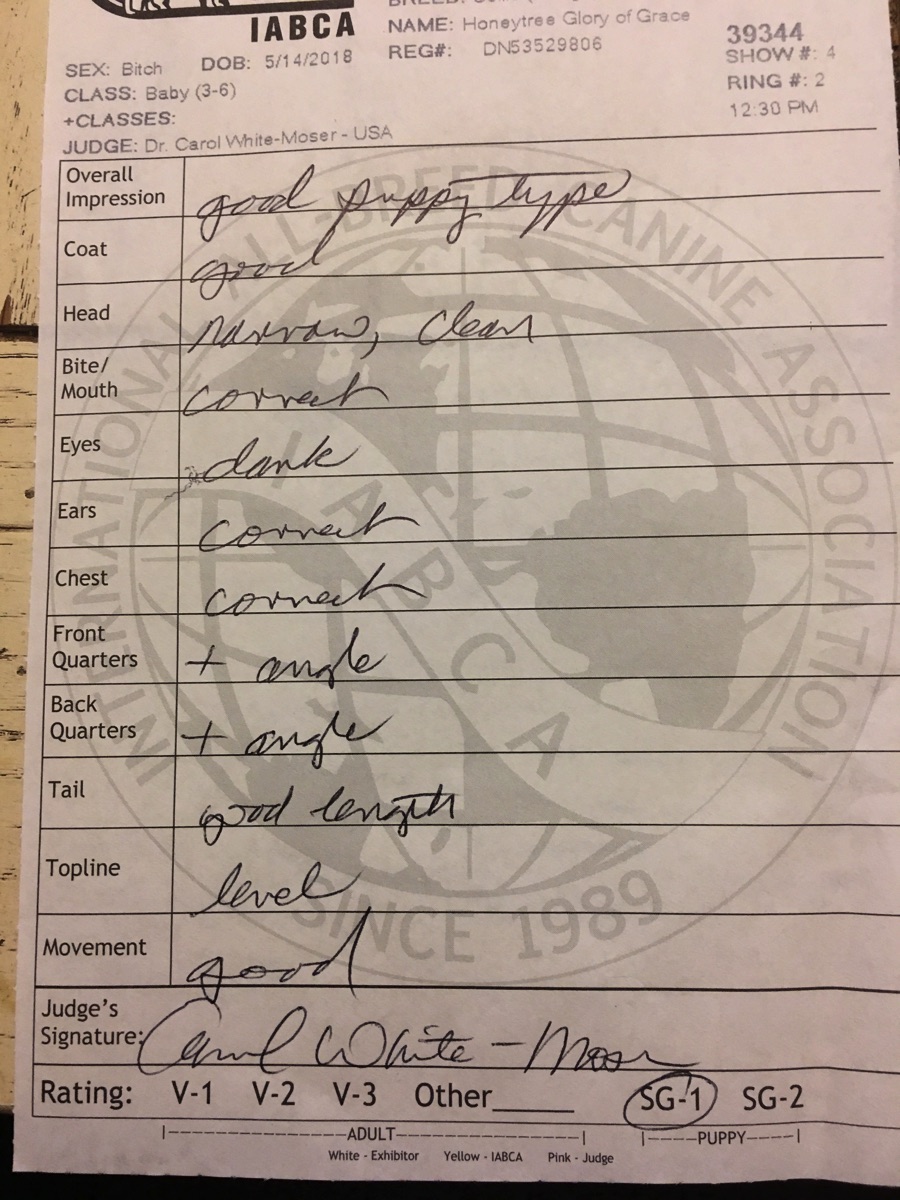 IABCA
NAME: Honeytree Glory of Grace
REG#: DN53529806
39344
SHOW #: 4
RING #: 2
12:30 PM
SEX: Bitch DOB: 5/14/2018
CLASS: Baby (3-6)
+CLASSES:
JUDGE: Dr. Carol White-Moser - USA
Overall Impression good puppy type
Coat good
Head narrow, clean
Bite/ Mouth correct
Eyes dark
Ears correct
Chest correct
Front Quarters + angle
Back Quarters + angle
Tail good length
Topline level
Movement good
Judge's Signature: Carol White-Moser
Rating: V-1 V-2 V-3 Other_____ SG-1 SG-2
ADULT PUPPY
White - Exhibitor Yellow - IABCA Pink - Judge
INTERNATIONAL ALL-BREED CANINE ASSOCIATION
IABCA
SINCE 1989